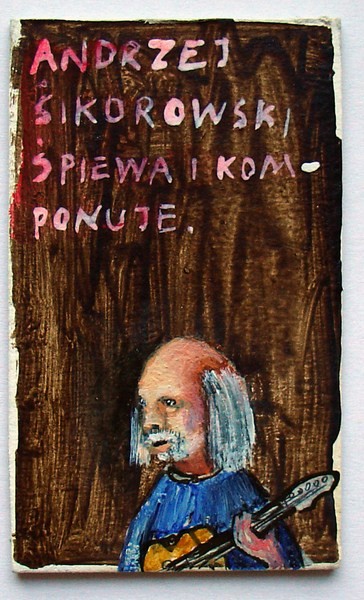 ANDRZEJ
SIKOROWSKI
ŚPIEWA I KOM-
PONUJE.